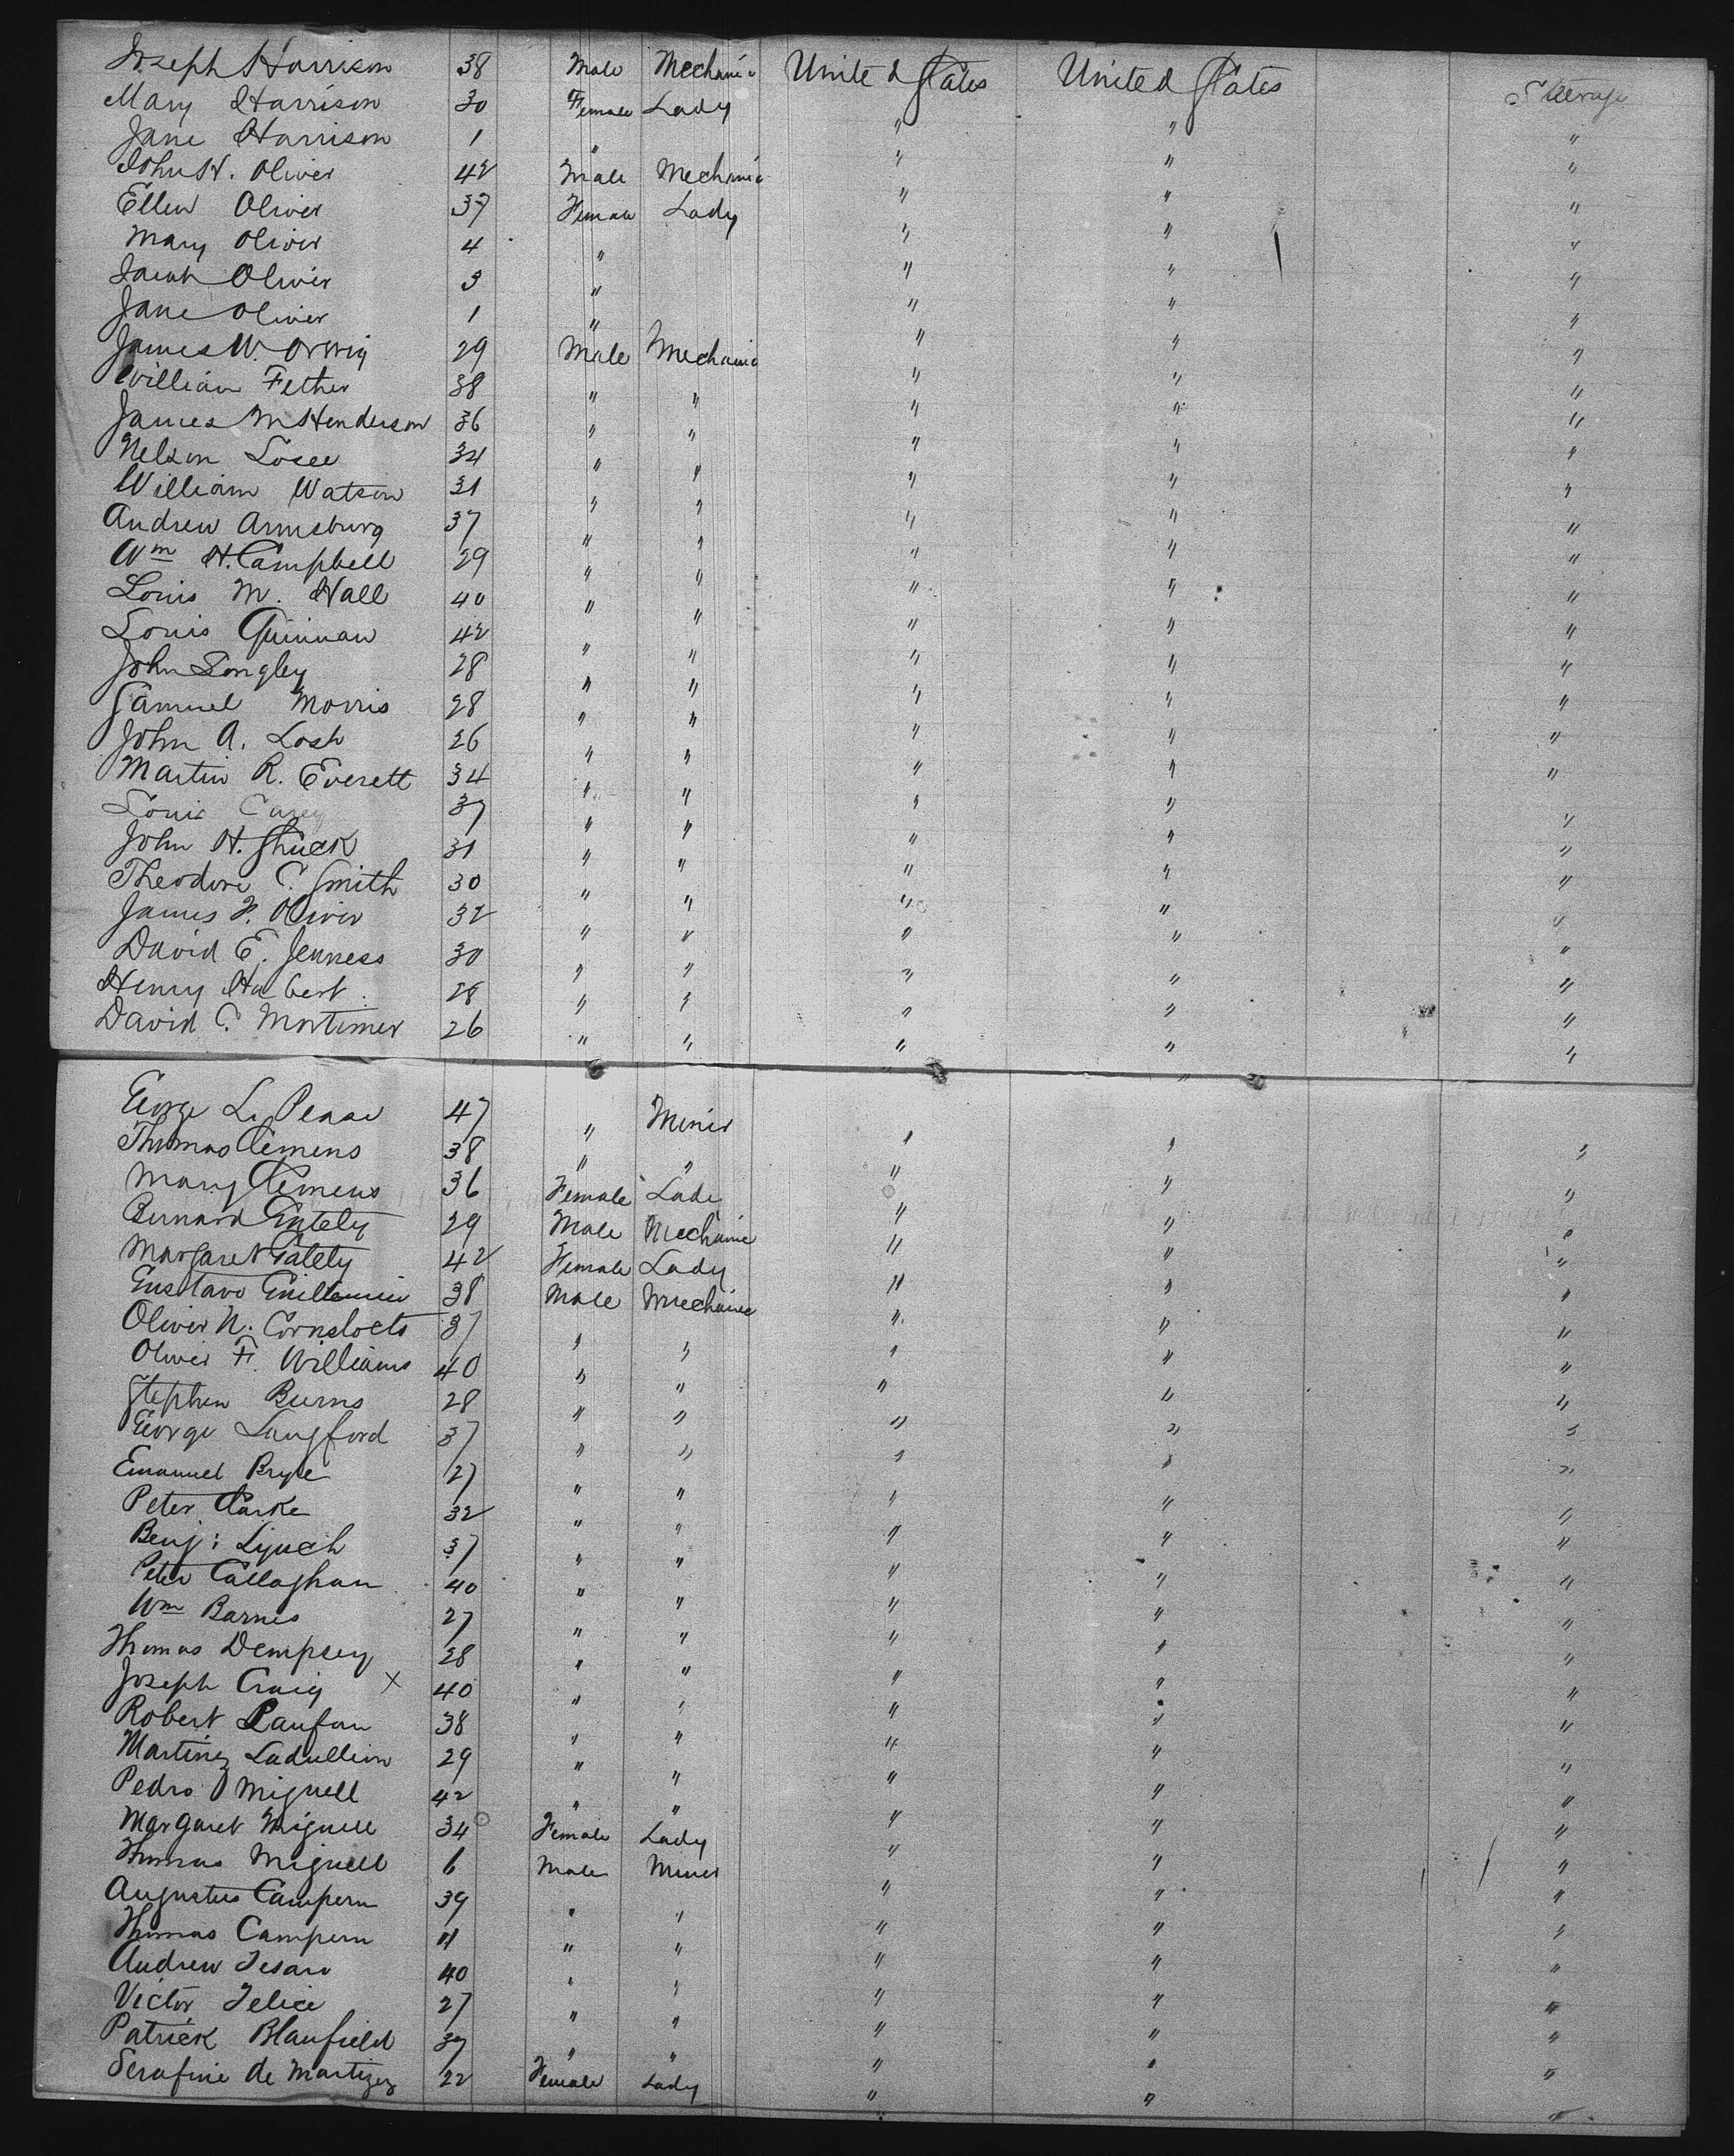 Joseph Harrison 38 Male Mechanic United States United States Steerage
Mary Harrison 30 Female Lady " " "
Jane Harrison 1 " " " "
John H. Oliver 42 Male Mechanic " " "
Ellen Oliver 37 Female Lady " " "
Mary Oliver 4 " " " "
Sarah Oliver 3 " " " "
Jane Oliver 1 " " " "
James W. Orwig 29 Male Mechanic " " "
William Fether 38 " " " " "
James M Henderson 36 " " " " "
Nelson Losee 34 " " " " "
William Watson 31 " " " " "
Andrew Armsburg 37 " " " " "
Wm H. Campbell 29 " " " " "
Louis M. Hall 40 " " " " "
Louis Quinnan 42 " " " " "
John Longley 28 " " " " "
Samuel Morris 28 " " " " "
John A. Losh 26 " " " " "
Martin R. Everett 34 " " " " "
Louis Carey 37 " " " " "
John H. Shuck 31 " " " " "
Theodore C. Smith 30 " " " " "
James F. Oliver 32 " " " " "
David E. Jenness 30 " " " " "
Henry 28 " " " " "
David C. Mortimer 26 " " " " "
George L. Pease 47 " Miner " " "
Thomas Clemens 38 " " " " "
Mary Clemens 36 Female Lady " " "
Bernard Gately 29 Male Mechanic " " "
Margaret Gately 42 Female Lady " " "
Gustavo 38 Male Mechanic " " "
Oliver N. 37 " " " " "
Oliver F. Williams 40 " " " " "
Stephen Burns 28 " " " " "
George Langford 37 " " " " "
Emanuel 27 " " " " "
Peter Clarke 32 " " " " "
Benj: Lynch 37 " " " " "
Peter Callaghan 40 " " " " "
Wm Barnes 27 " " " " "
Thomas Dempsey 28 " " " " "
Joseph Craig X 40 " " " " "
Robert 38 " " " " "
Martinez 29 " " " " "
Pedro Miguell 42 " " " " "
Margaret Miguell 34 Female Lady " " "
Thomas Miguell 6 Male Miner " " "
Augustus Campern 39 " " " " "
Thomas Campern 11 " " " " "
Andrew 40 " " " " "
Victor Felice 27 " " " " "
Patrick Blanfield 37 " " " " "
Serafine de Martizez 22 Female Lady " " "